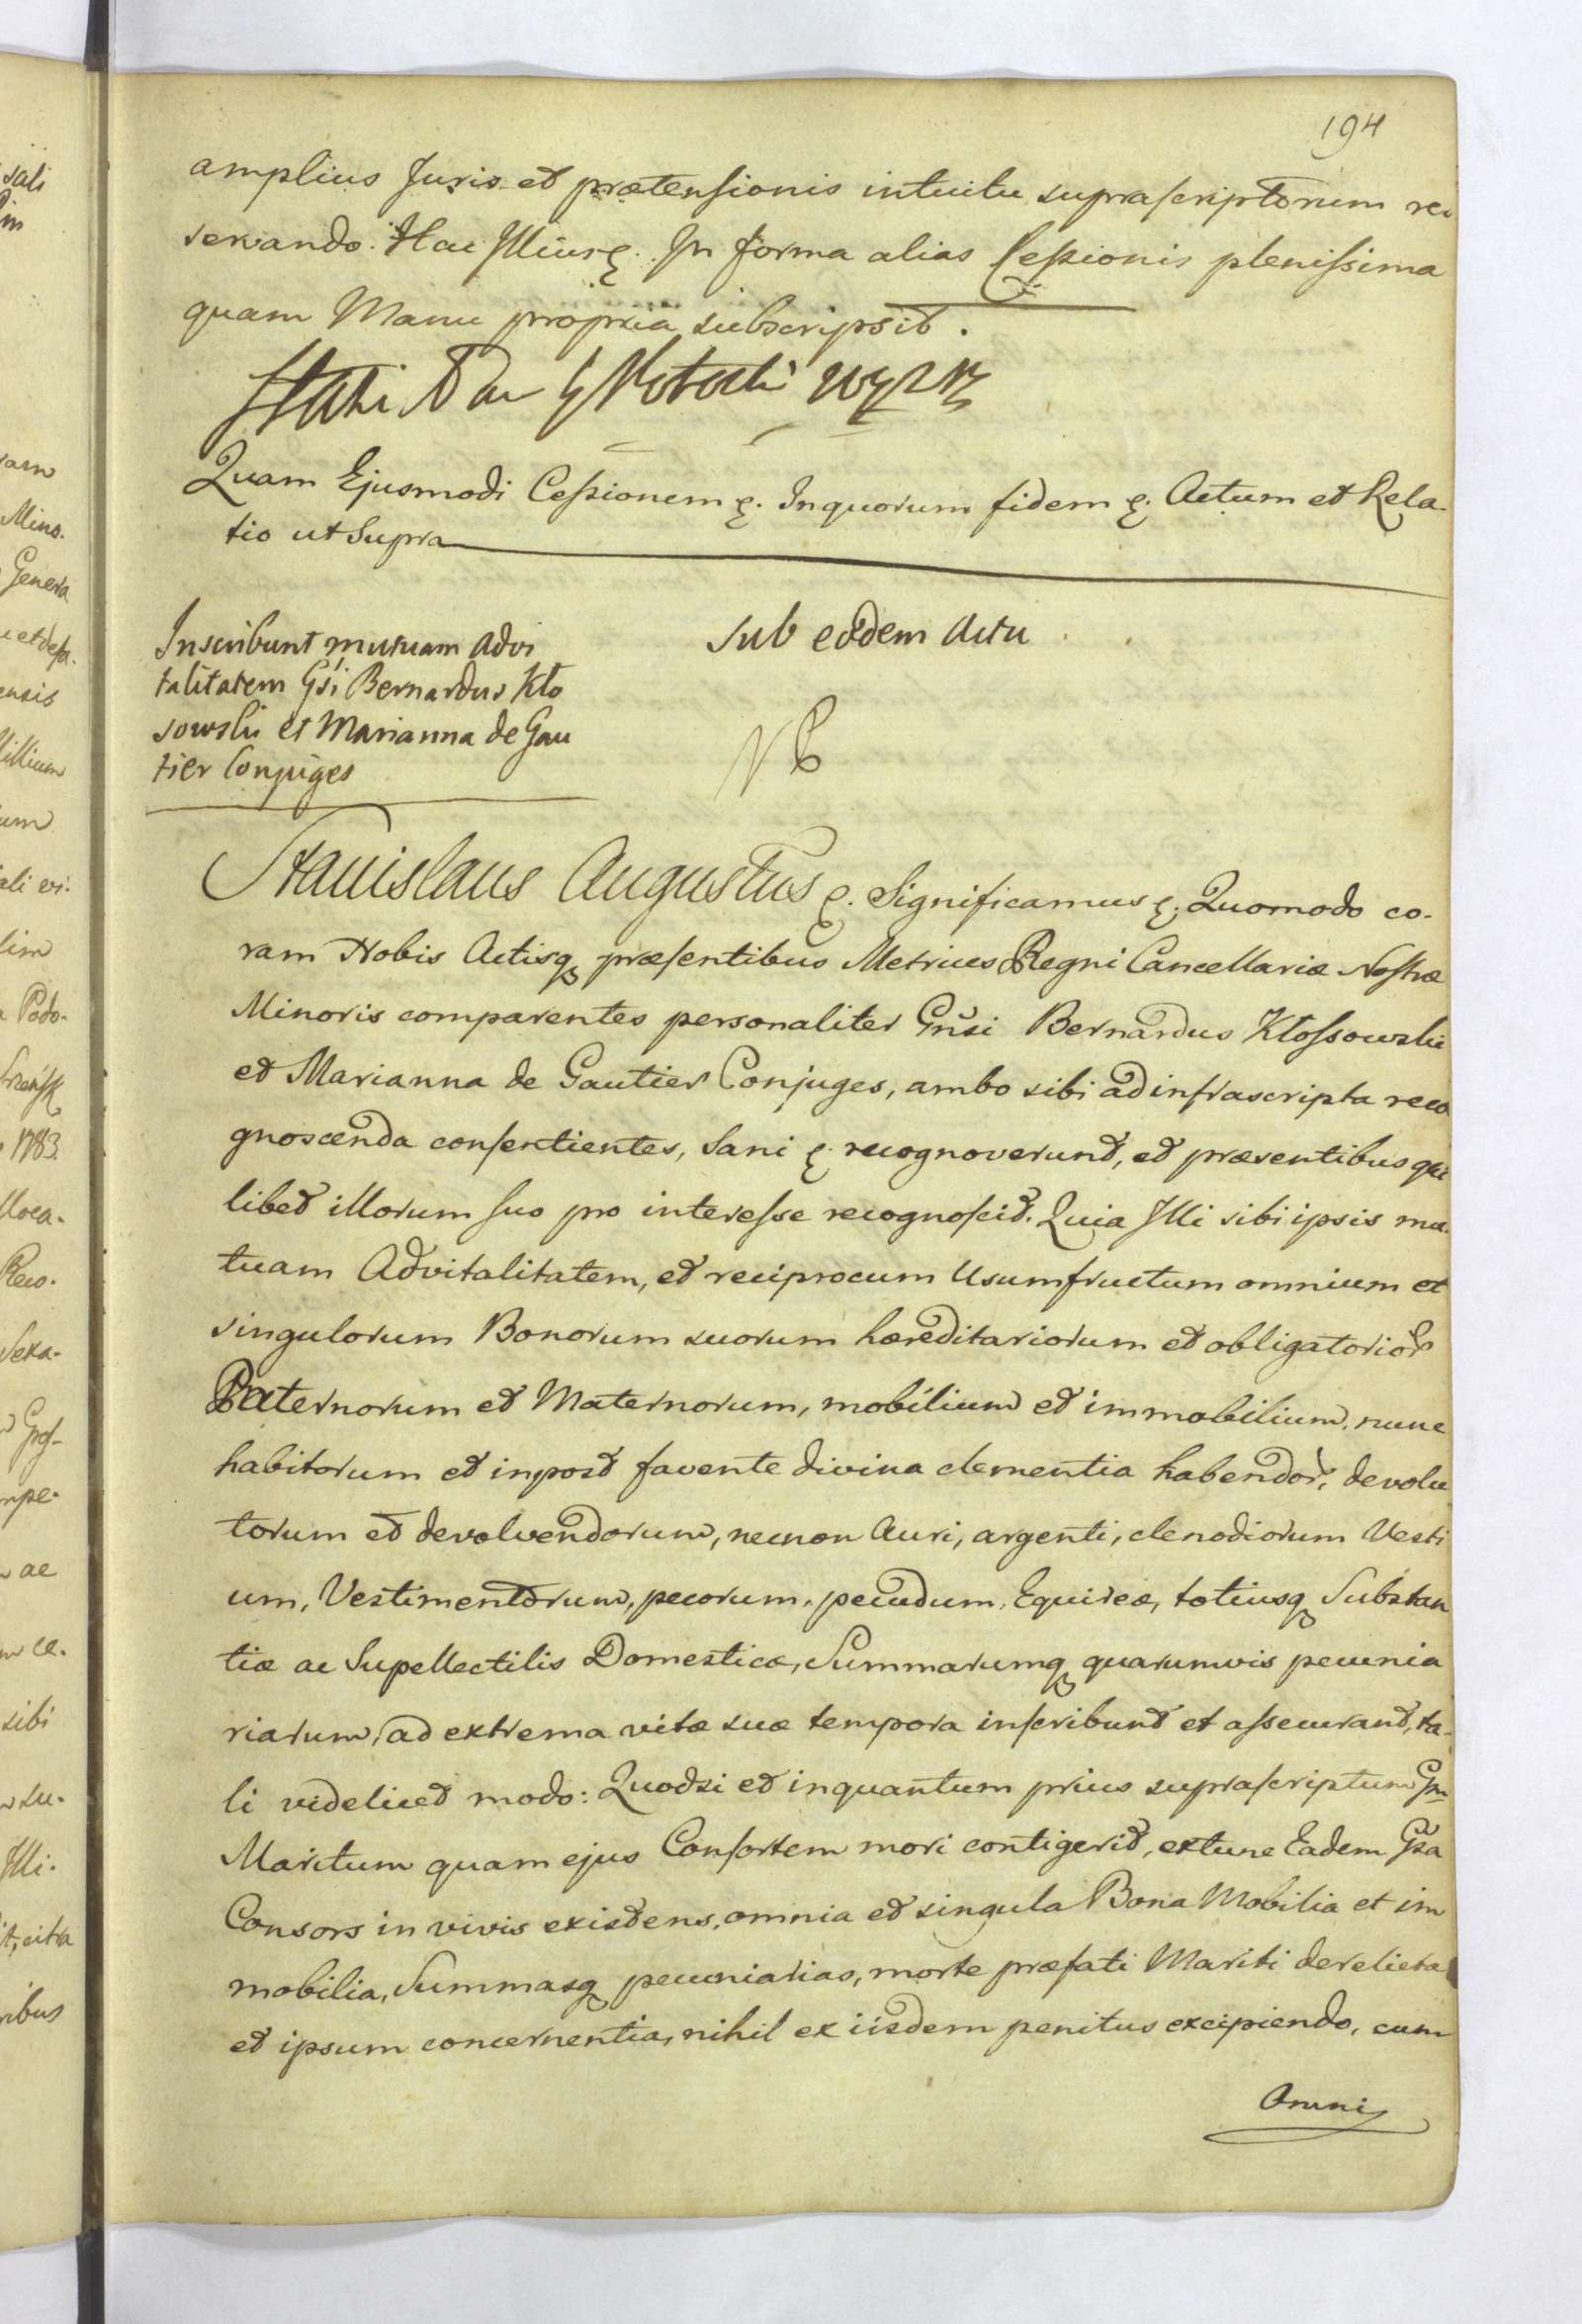 194
amplius Juris et prætensionis intuitu suprascriptorum re
servando. Hac Illius &. In forma alias Cessionis plenissima
quam Manu propria subscripsit.
Quam Ejusmodi Cessionem &. Inquorum fidem &. Actum et Rela-
tio ut Supra
Inscribunt mutuam advi
talitatem Gsi Bernardus Kło
sowski et Marianna de Gau
tier Conjuges
Sub eodem Actu
Stanislaus Augustus &. Significamus &. Quomodo co-
ram Nobis Actisq præsentibus Metrices Regni Cancellariæ Nostræ
Minoris comparentes personaliter Gnsi Bernardus Kłossowski
et Marianna de Gautier Conjuges, ambo sibi ad infrascripta reco
gnoscenda consentientes, Sani &. recognoverunt, et præsentibus qui
libet illorum suo pro interesse recognoscit. Quia Illi sibi ipsis mu-
tuam Advitalitatem, et reciprocum Usumfructum omnium et
singulorum Bonorum suorum hæreditariorum et obligatorior
Paternorum et Maternorum, mobilium et immobilium, nunc
habitorum et inpost favente divina clementia habendor, devolu
torum et devolvendorum, necnon Auri, argenti, clenodiorum Vesti
um, Vestimentorum, pecorum, pecudum, Equireæ, totiusq Substan
tiæ ac Supellectilis Domesticæ, Summarumq quarumvis pecunia
riarum, ad extrema vitæ suæ tempora inscribunt et assecurant, ta-
li videlicet modo: Quodsi et inquantum prius suprascriptum Gm
Maritum quam ejus Consortem mori contigerit, extunc Eadem Gsa
Consors in vivis existens, omnia et singula Bona Mobilia et im
mobilia, Summasq pecuniarias, morte præfati Mariti derelicta
et ipsum concernentia, nihil ex iisdem penitus excipiendo, cum
Omni